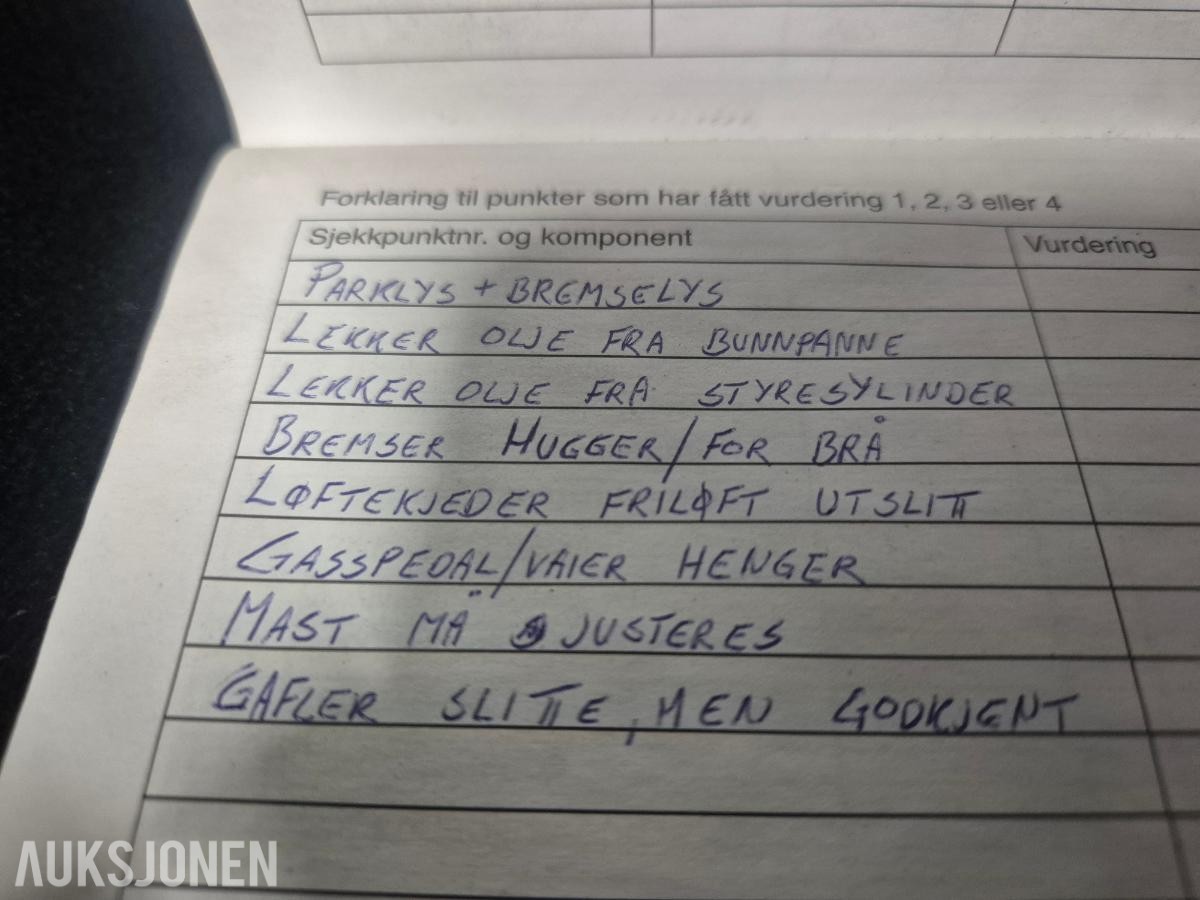 Forklaring til punkter som har fått vurdering 1, 2, 3 eller 4
Sjekkpunktnr. og komponent Vurdering
PARKLYS + BREMSELYS
LEKKER OLJE FRA BUNNPANNE
LEKKER OLJE FRA STYRESYLINDER
BREMSER HUGGER/FOR BRÅ
LØFTEKJEDER FRILØFT UTSLITT
GASSPEDAL/VAIER HENGER
MAST MÅ JUSTERES
GAFLER SLITTE, MEN GODKJENT
AUKSJONEN